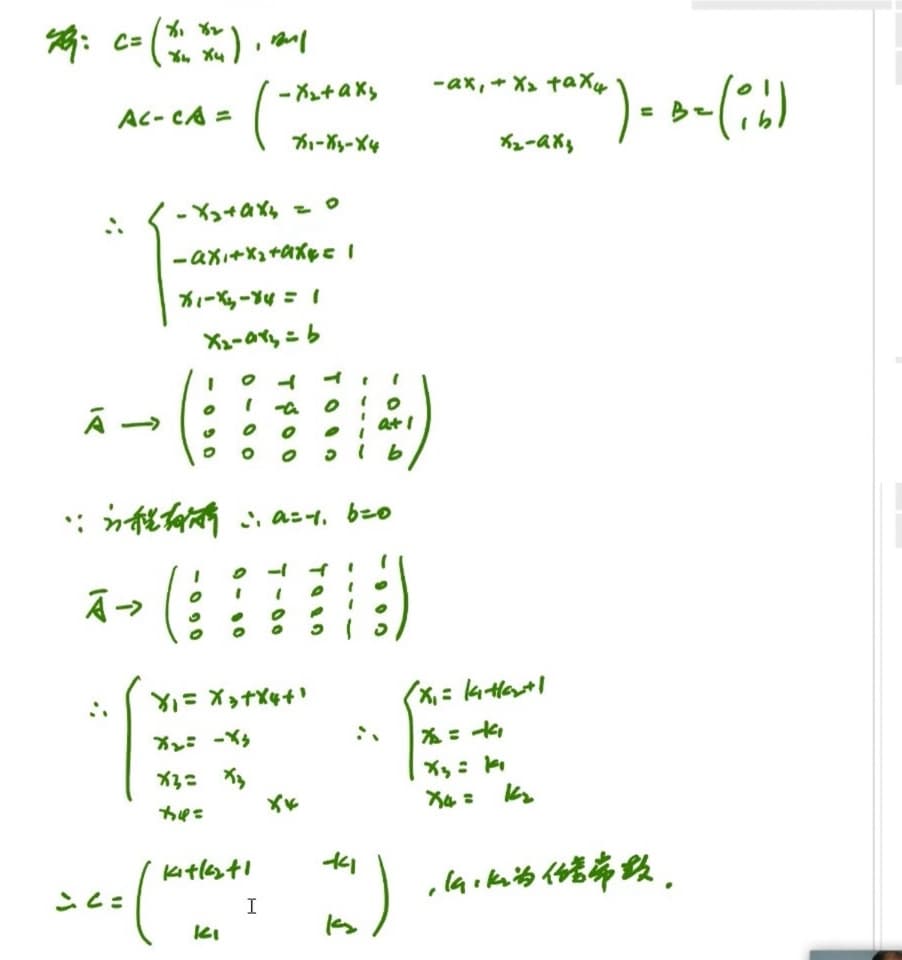 解: C=(x₁ x₂
x₃ x₄), 则
AC-CA= ( -x₂+ax₃ -ax₁+x₂+ax₄
x₁-x₃-x₄ x₂-ax₃ ) = B= (0 1
1 b)
∴ { -x₂+ax₃ = 0
-ax₁+x₂+ax₄= 1
x₁-x₃-x₄ = 1
x₂-ax₃ = b
Ā → ( 1 0 -1 -1 ¦ 1
0 1 -a 0 ¦ 0
0 0 0 0 ¦ a+1
0 0 0 0 ¦ b )
∵ 方程有解 ∴ a=-1, b=0
Ā → ( 1 0 -1 -1 ¦ 1
0 1 1 0 ¦ 0
0 0 0 0 ¦ 0
0 0 0 0 ¦ 0 )
∴ { x₁= x₃+x₄+1
x₂= -x₃
x₃= x₃
x₄= x₄
∴ { x₁= k₁+k₂+1
x₂ = -k₁
x₃ = k₁
x₄ = k₂
∴ C= ( k₁+k₂+1 -k₁
k₁ k₂ ) , k₁, k₂为任意常数.